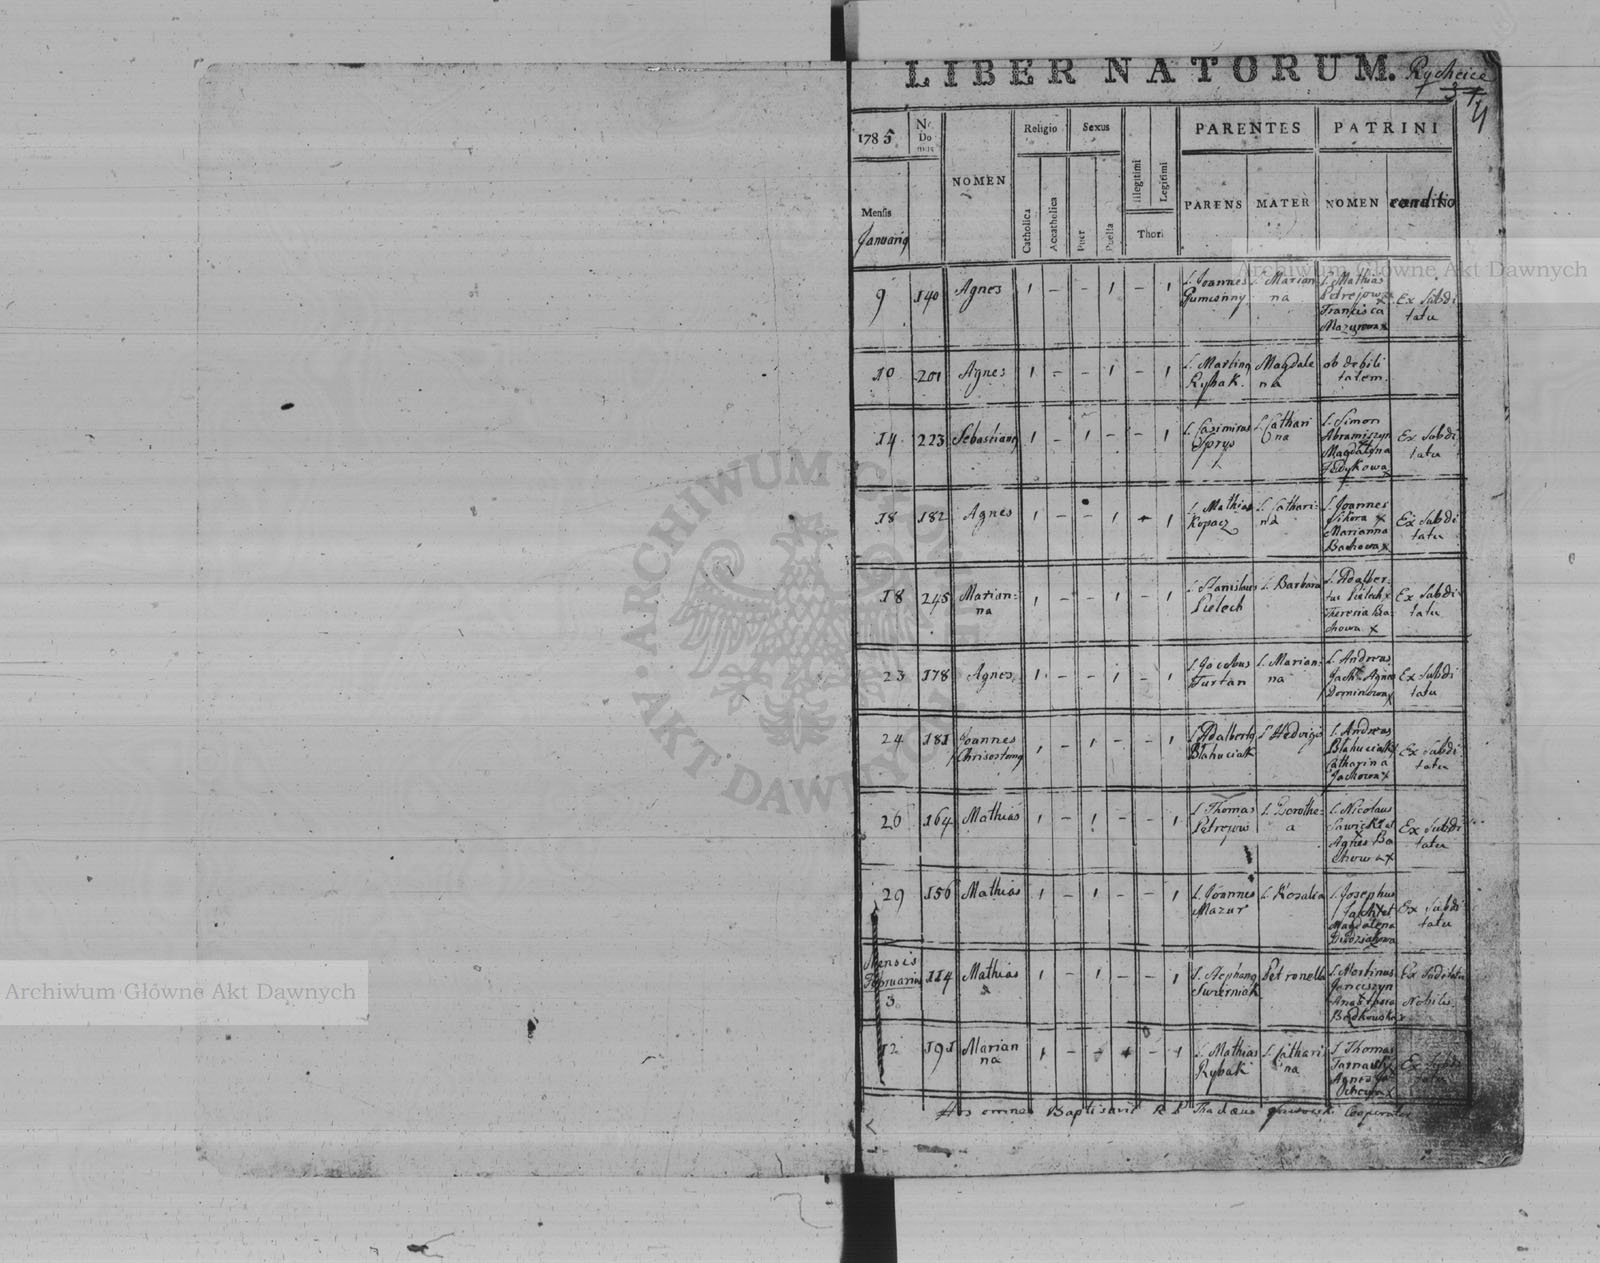 LIBER NATORUM.
Rychcice
4
1785
No. Do mus
NOMEN
Religio
Sexus
Illegitimi
Legitimi
PARENTES
PATRINI
Mensis
Januarii
Catholica
Accatholica
Puer
Puella
Thori
PARENS
MATER
NOMEN
conditio
9 140 Agnes 1 – – 1 – 1
L. Joannes Gumenny
L. Marian na
L. Mathias Petrejow x Francisca Mazurowa x
Ex Subdi tatu
10 201 Agnes 1 – – 1 – 1
L. Martinus Rybak.
Magdale na
ob debili tatem.
14 223 Sebastianus 1 – 1 – – 1
L. Casimirus Sprys
L. Cathari na
L. Simon Abramiszyn Magdalena Fedykowa x
Ex Subdi tatu
18 182 Agnes 1 – – 1 – 1
L. Mathias Kopacz
L. Cathari- na
L. Joannes Sikora x Marianna Bachowa x
Ex Subdi tatu
18 245 Marian- na 1 – – 1 – 1
L. Stanislaus Pielech
L. Barbara
L. Adalber- tus Pielech x Theresia Ba- chowa x
Ex Subdi tatu
23 178 Agnes 1 – – 1 – 1
L. Jacobus Furtan
L. Marian- na
L. Andreas Jach Agnes Dominowa x
Ex Subdi tatu
24 181 Joannes Chrisostomus 1 – 1 – – 1
L. Adalbertus Blahuciak
L. Hedvigis
L. Andreas Blahuciak x Catharina Jachowa x
Ex Subdi tatu
26 164 Mathias 1 – 1 – – 1
L. Thomas Petrejow
L. Dorothe- a
L. Nicolaus Sawicki et Agnes Ba chowa x
Ex Subdi tatu
29 156 Mathias 1 – 1 – – 1
L. Joannes Mazur
L. Rosalia
L. Josephus Jach et Magdalena
Ex Subdi tatu
Mensis Februarius 3 114 Mathias 1 – 1 – – 1
L. Stephanus
Petronella
L. Martinus Janciszyn
Nobilis
12 191 Marian na 1 – – 1 – 1
L. Mathias Rybak
L. Cathari na
L. Thomas Tarnawski Agnes
Ex Subdi tatu
Hos omnes Baptisavit R. D. Thadaeus Cooperator
Archiwum Główne Akt Dawnych
Archiwum Główne Akt Dawnych
ARCHIWUM GŁÓWNE AKT DAWNYCH